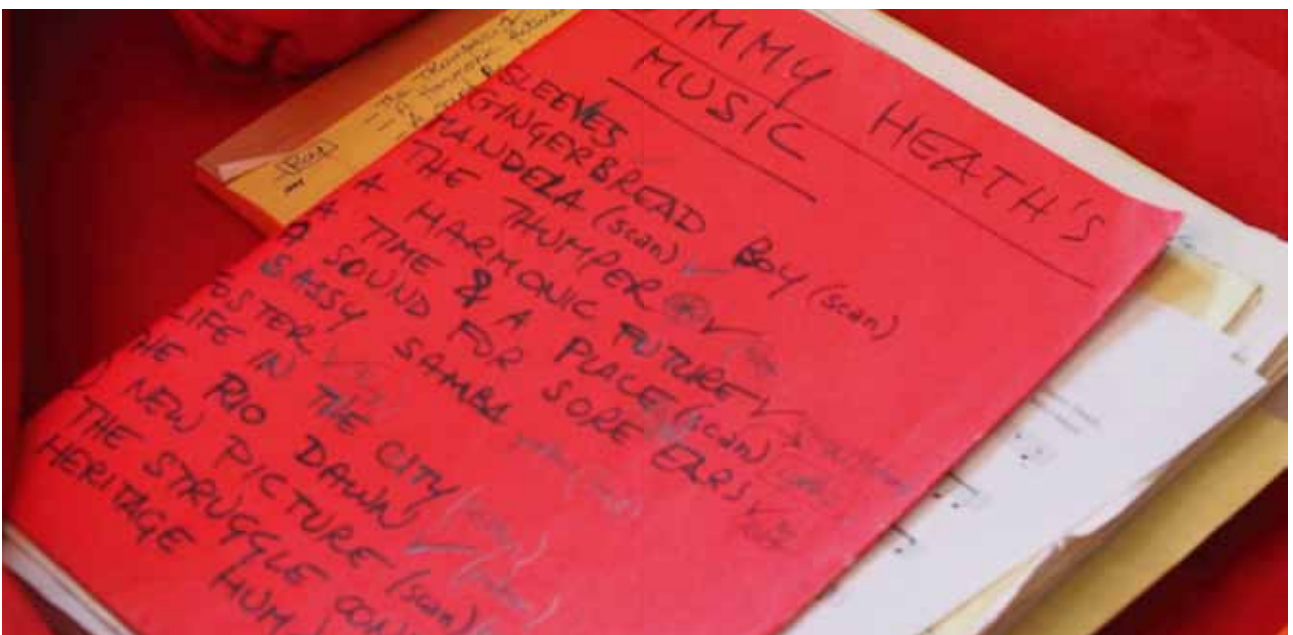 IMMY HEATH'S
MUSIC
SLEEVES
GINGERBREAD BOY (scan)
MANDELA (scan)
THE THUMPER
A HARMONIC FUTURE
A TIME & A PLACE (scan)
A SOUND FOR SORE EARS
SASSY SAMBA
OSTER
LIFE IN THE CITY
THE RIO DAWN
NEW PICTURE (scan)
THE STRUGGLE CON
HERITAGE HUM